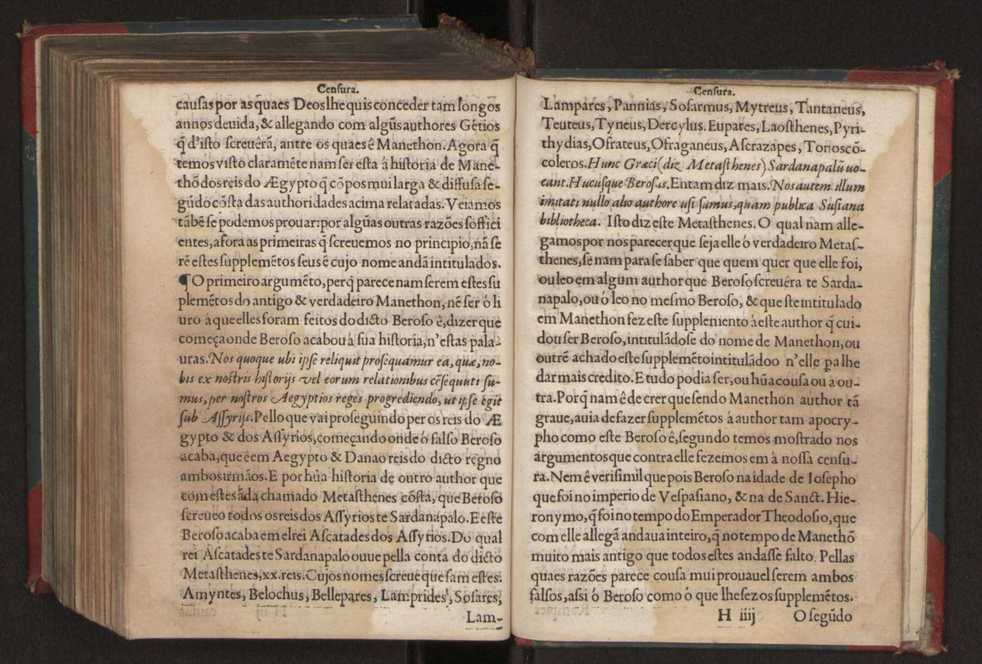 Censura.
causas por as quaes Deos lhe quis conceder tam longos
annos de vida, & allegando com algũs authores Gētios
q̃ d'isto screuerã, antre os quaes ê Manethon. Agora q̃
temos visto claramēte nam ser esta â historia de Mane-
thõ dos reis do Ægypto q̃ cõpos mui larga & diffusa se-
gũdo cõsta das authoridades acima relatadas. Vejamos
tãbē se podemos prouar: por algũas outras razões soffici
entes, afora as primeiras q̃ screuemos no principio, nã se
rē estes supplemētos seus ē cujo nome andã intitulados.
¶ O primeiro argumēto, perq̃ parece nam serem estes su
plemētos do antigo & verdadeiro Manethon, nē ser ó li
uro â que elles foram feitos do dicto Beroso ê, dizer que
começa onde Beroso acabou â sua historia, n'estas pala-
uras. Nos quoque ubi ipse reliquit prosequamur ea, quæ, no-
bis ex nostris historijs vel eorum relationibus cōsequuti su-
mus, per nostros Aegyptios reges progrediendo, ut ipse egit
sub Assyrijs. Pello que vai proseguindo per os reis do Æ
gypto & dos Assyrios, começando onde ó falso Beroso
acaba, que ê em Aegypto & Danao reis do dicto regno
ambos irmãos. E por hũa historia de outro author que
com estes ãda chamado Metasthenes cõsta, que Beroso
screueo todos os reis dos Assyrios te Sardanapalo. E este
Beroso acaba em el rei Ascatades dos Assyrios. Do qual
rei Ascatades te Sardanapalo ouue pella conta do dicto
Metasthenes, xx. reis. Cujos nomes screue que sam estes.
Amyntes, Belochus, Bellepares, Lamprides, Sosares,
Lam-
Censura.
Lampares, Pannias, Sosarmus, Mytreus, Tantaneus,
Teuteus, Tyneus, Dercylus. Eupates, Laosthenes, Pyri-
thydias, Ofrateus, Ofraganeus, Ascrazapes, Tonoscõ-
coleros. Hunc Græci (diz Metasthenes) Sardanapalũ vo-
cant. Hucusque Berosus. Entam diz mais. Nos autem illum
imitati nullo alio authore usi sumus, quàm publica Susiana
bibliotheca. Isto diz este Metasthenes. O qual nam alle-
gamos por nos parecer que seja elle ó verdadeiro Metas-
thenes, se nam para se saber que quem quer que elle foi,
ou leo em algum author que Beroso screuêra te Sarda-
napalo, ou ó leo no mesmo Beroso, & que ste intitulado
em Manethon fez este supplemento â este author q̃ cui-
dou ser Beroso, intitulãdose do nome de Manethon, ou
outrē achado este supplemēto intituládoo n'elle pa lhe
dar mais credito. E tudo podia ser, ou hũa cousa ou a ou-
tra. Porq̃ nam ê de crer que sendo Manethon author tã
graue, auia de fazer supplemētos â author tam apocry-
pho como este Beroso ê, segundo temos mostrado nos
argumentos que contra elle fezemos em â nossa censu-
ra. Nem ê verisimil que pois Beroso na idade de Iosepho
que foi no imperio de Vespasiano, & na de Sanct. Hie-
ronymo, q̃ foi no tempo do Emperador Theodosio, que
com elle allegã andaua inteiro, q̃ no tempo de Manethõ
muito mais antigo que todos estes andasse falto. Pellas
quaes razões parece cousa mui prouauel serem ambos
falsos, assi ó Beroso como ó que lhe fez os supplemētos.
H iiij O segũdo